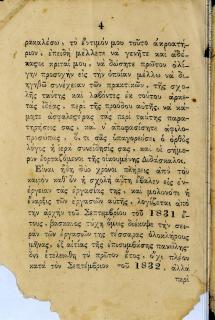 4
ρακαλέσω, τὸ ἔντιμόν μου τοῦτο ἀκροατή-
ριον, ἐπειδὴ μέλλετε νὰ γενῆτε καὶ ἀδέ-
καστοι κριταί μου, νὰ δώσητε πρῶτον ὀλί-
γην προσοχὴν εἰς τὴν ὁποίαν μέλλω νὰ δι-
ηγηθῶ συνέχειαν τῶν πρακτικῶν, τῆς σχο-
λῆς ταύτης καὶ λαβόντες ἐκ τούτου ἀρκε-
τὰς ἰδέας, περὶ τῆς προόδου αὐτῆς, νὰ κά-
μητε ἀσφαλεστέρας τὰς περὶ ταύτης παρα-
τηρήσεις σας, καὶ ν' ἀποφασίσητε ἀφιλο-
προσώπως, ὅ,τι σᾶς ὑπαγορεύσει ὁ ὀρθὸς
λόγος ἡ ἱερὰ συνείδησίς σας, καὶ οἱ σήμε-
ρον ἑορταζόμενοι τῆς οἰκουμένης Διδάσκαλοι.
Εἶναι ἤδη δύο χρόνοι πλήρεις ἀπὸ τὸν
καιρὸν καθ' ὃν ἡ σχολὴ αὕτη ἔβαλεν εἰς ἐν-
έργειαν τὰς ἐργασίας της, καὶ μολονότι ἡ
ἔναρξις τῶν ἐργασιῶν αὐτῆς, λογίζεται ἀπὸ
τὴν ἀρχὴν τοῦ Σεπτεμβρίου τοῦ 1831 ἔ-
τους, βάσκανος τύχη ὅμως διέκοψε τὴν σει-
ρὰν τῶν ἐργασιῶν της τέσσαρας ὁλοκλήρους
μῆνας, ἐξ αἰτίας τῆς ἐπισυμβάσης πανώλης·
δὲν ἐτελειώθη τὸ πρῶτον ἔτος, ὄχι πλέον
κατὰ τὸν Σεπτέμβριον τοῦ 1832, ἀλλὰ
περὶ